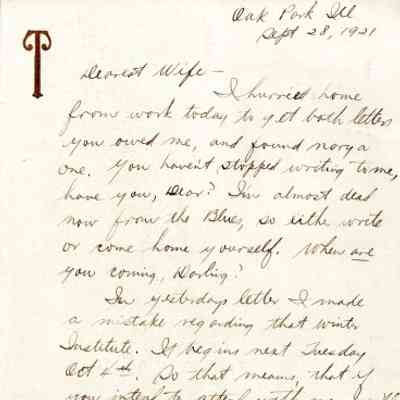 T
Oak Park Ill
Sept 28, 1921
Dearest Wife —
I hurried home
from work today to get both letters
you owed me, and found nary a
one. You haven't stopped writing to me,
have you, Dear? I'm almost dead
now from the Blues, so eithe write
or come home yourself. When are
you coming, Darling?
In yesterdays letter I made
a mistake regarding that winter
Institute. It begins next Tuesday
Oct 4th. So that means, that if
you intend to attend with me